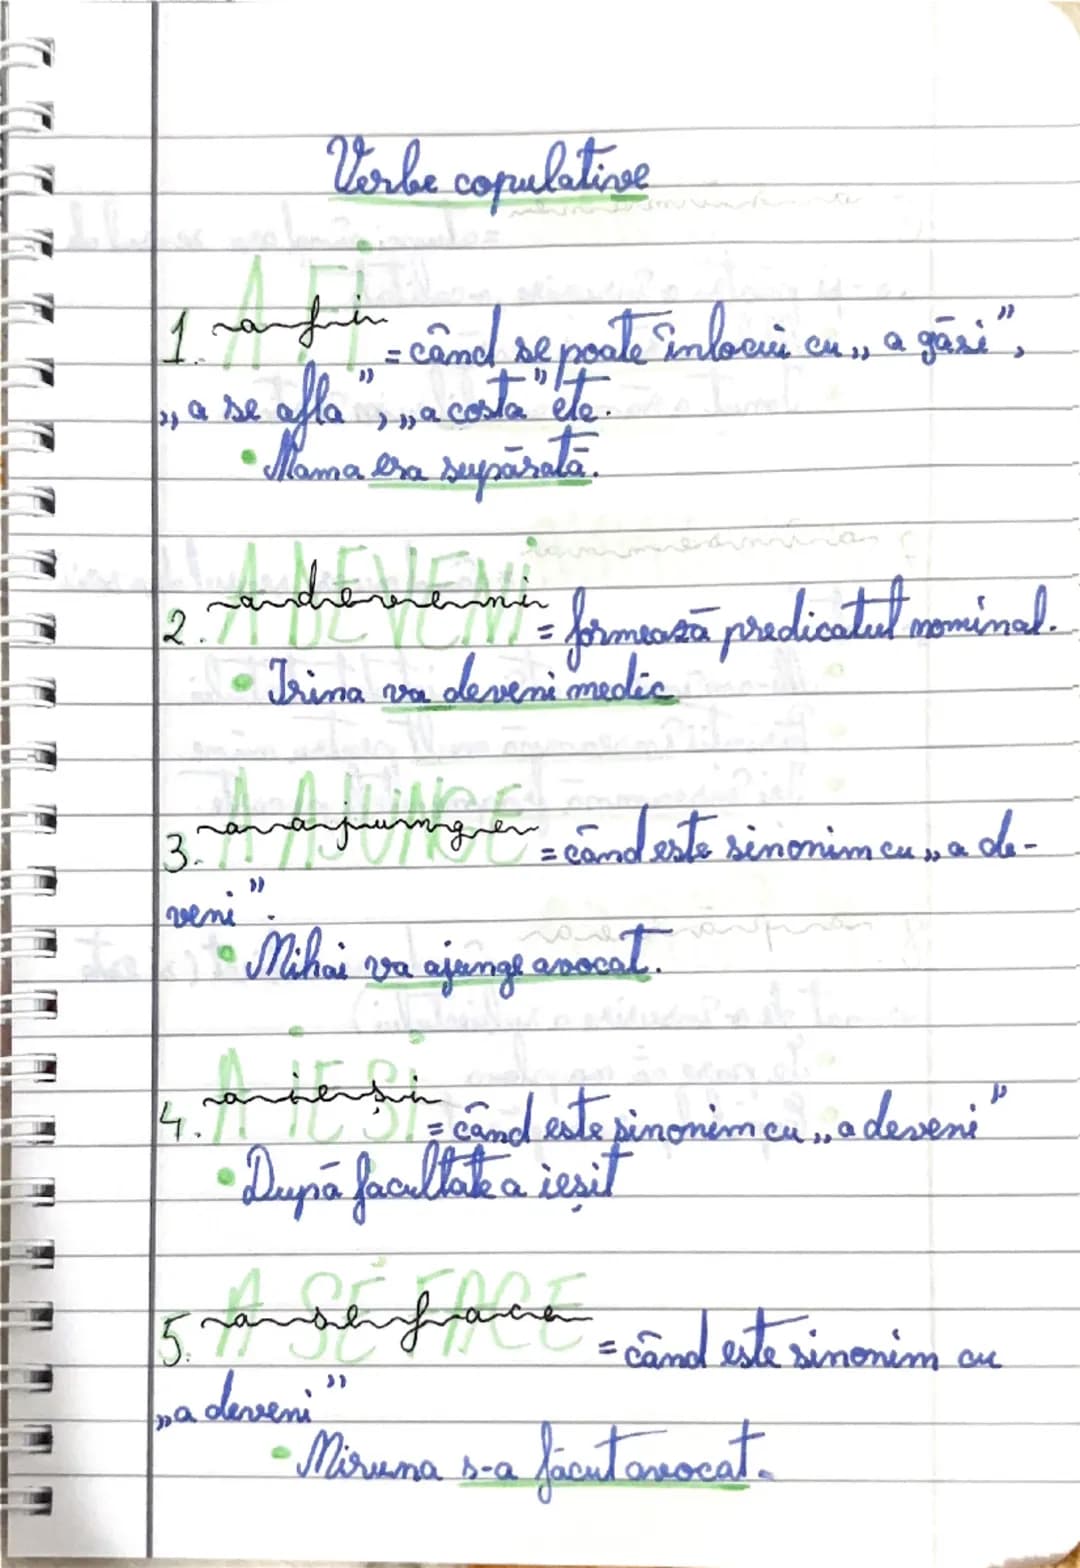 Verbe copulative
1. A FI a fi = când se poate înlocui cu „a găsi”,
„a se afla”, „a costa” etc.
• Mama era supărată.
2. A DEVENI a deveni = formează predicatul nominal.
• Irina va deveni medic
3. A AJUNGE a ajunge = când este sinonim cu „a de-
veni”.
• Mihai va ajunge avocat.
4. A IEȘI a ieși = când este sinonim cu „a deveni”
• După facultate a ieșit
5. A SE FACE a se face = când este sinonim cu
„a deveni”
• Miruna s-a făcut avocat.